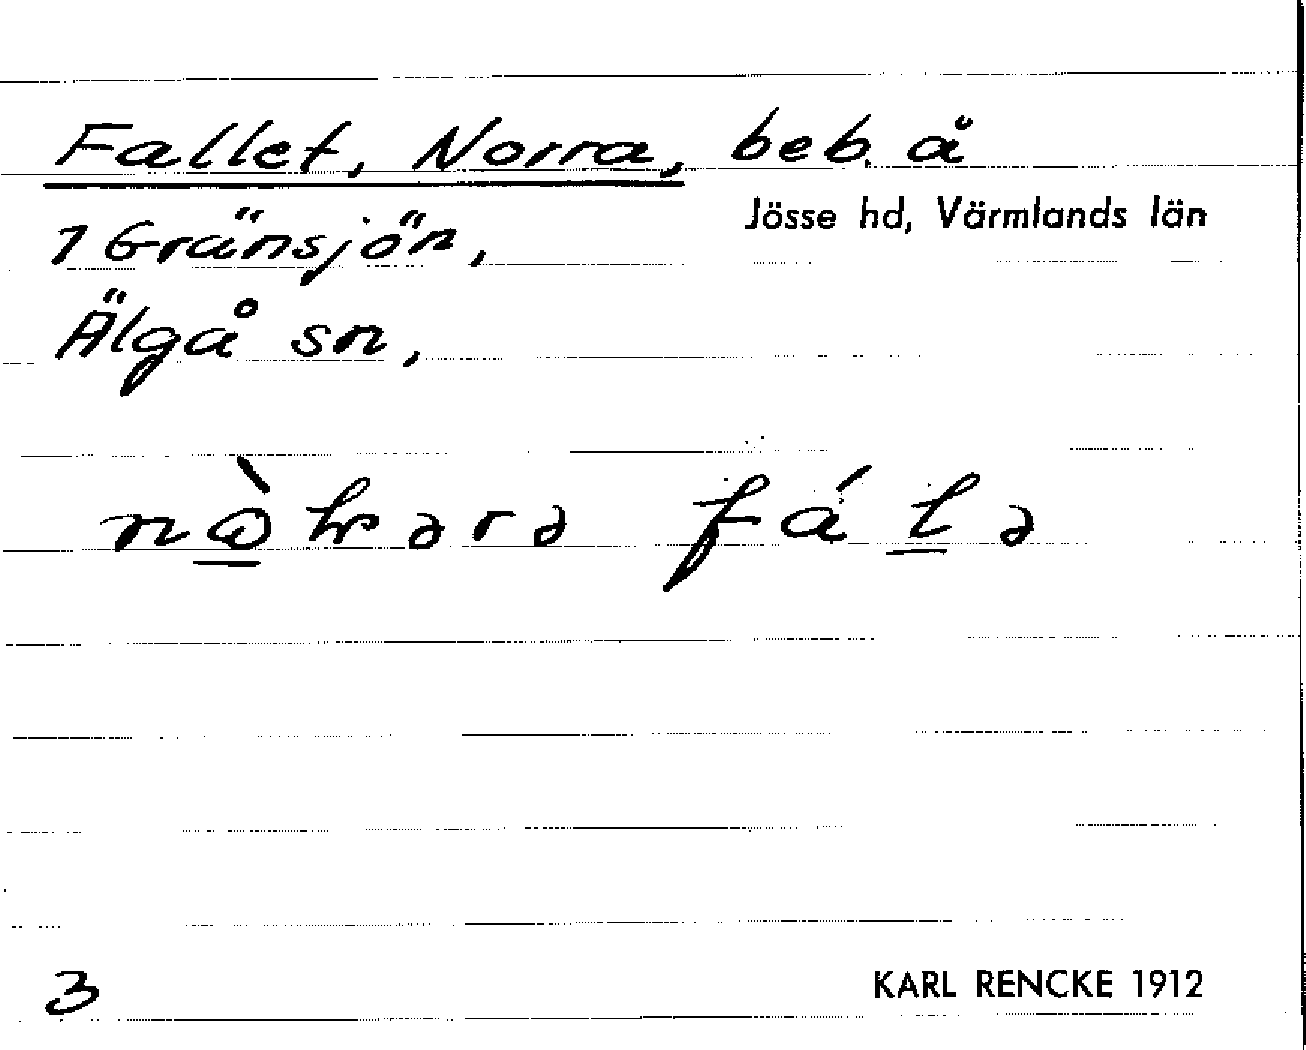 Fallet, Norra, beb. å
1 Gränsjön,
Jösse hd, Värmlands län
Älgå sn,
3
KARL RENCKE 1912